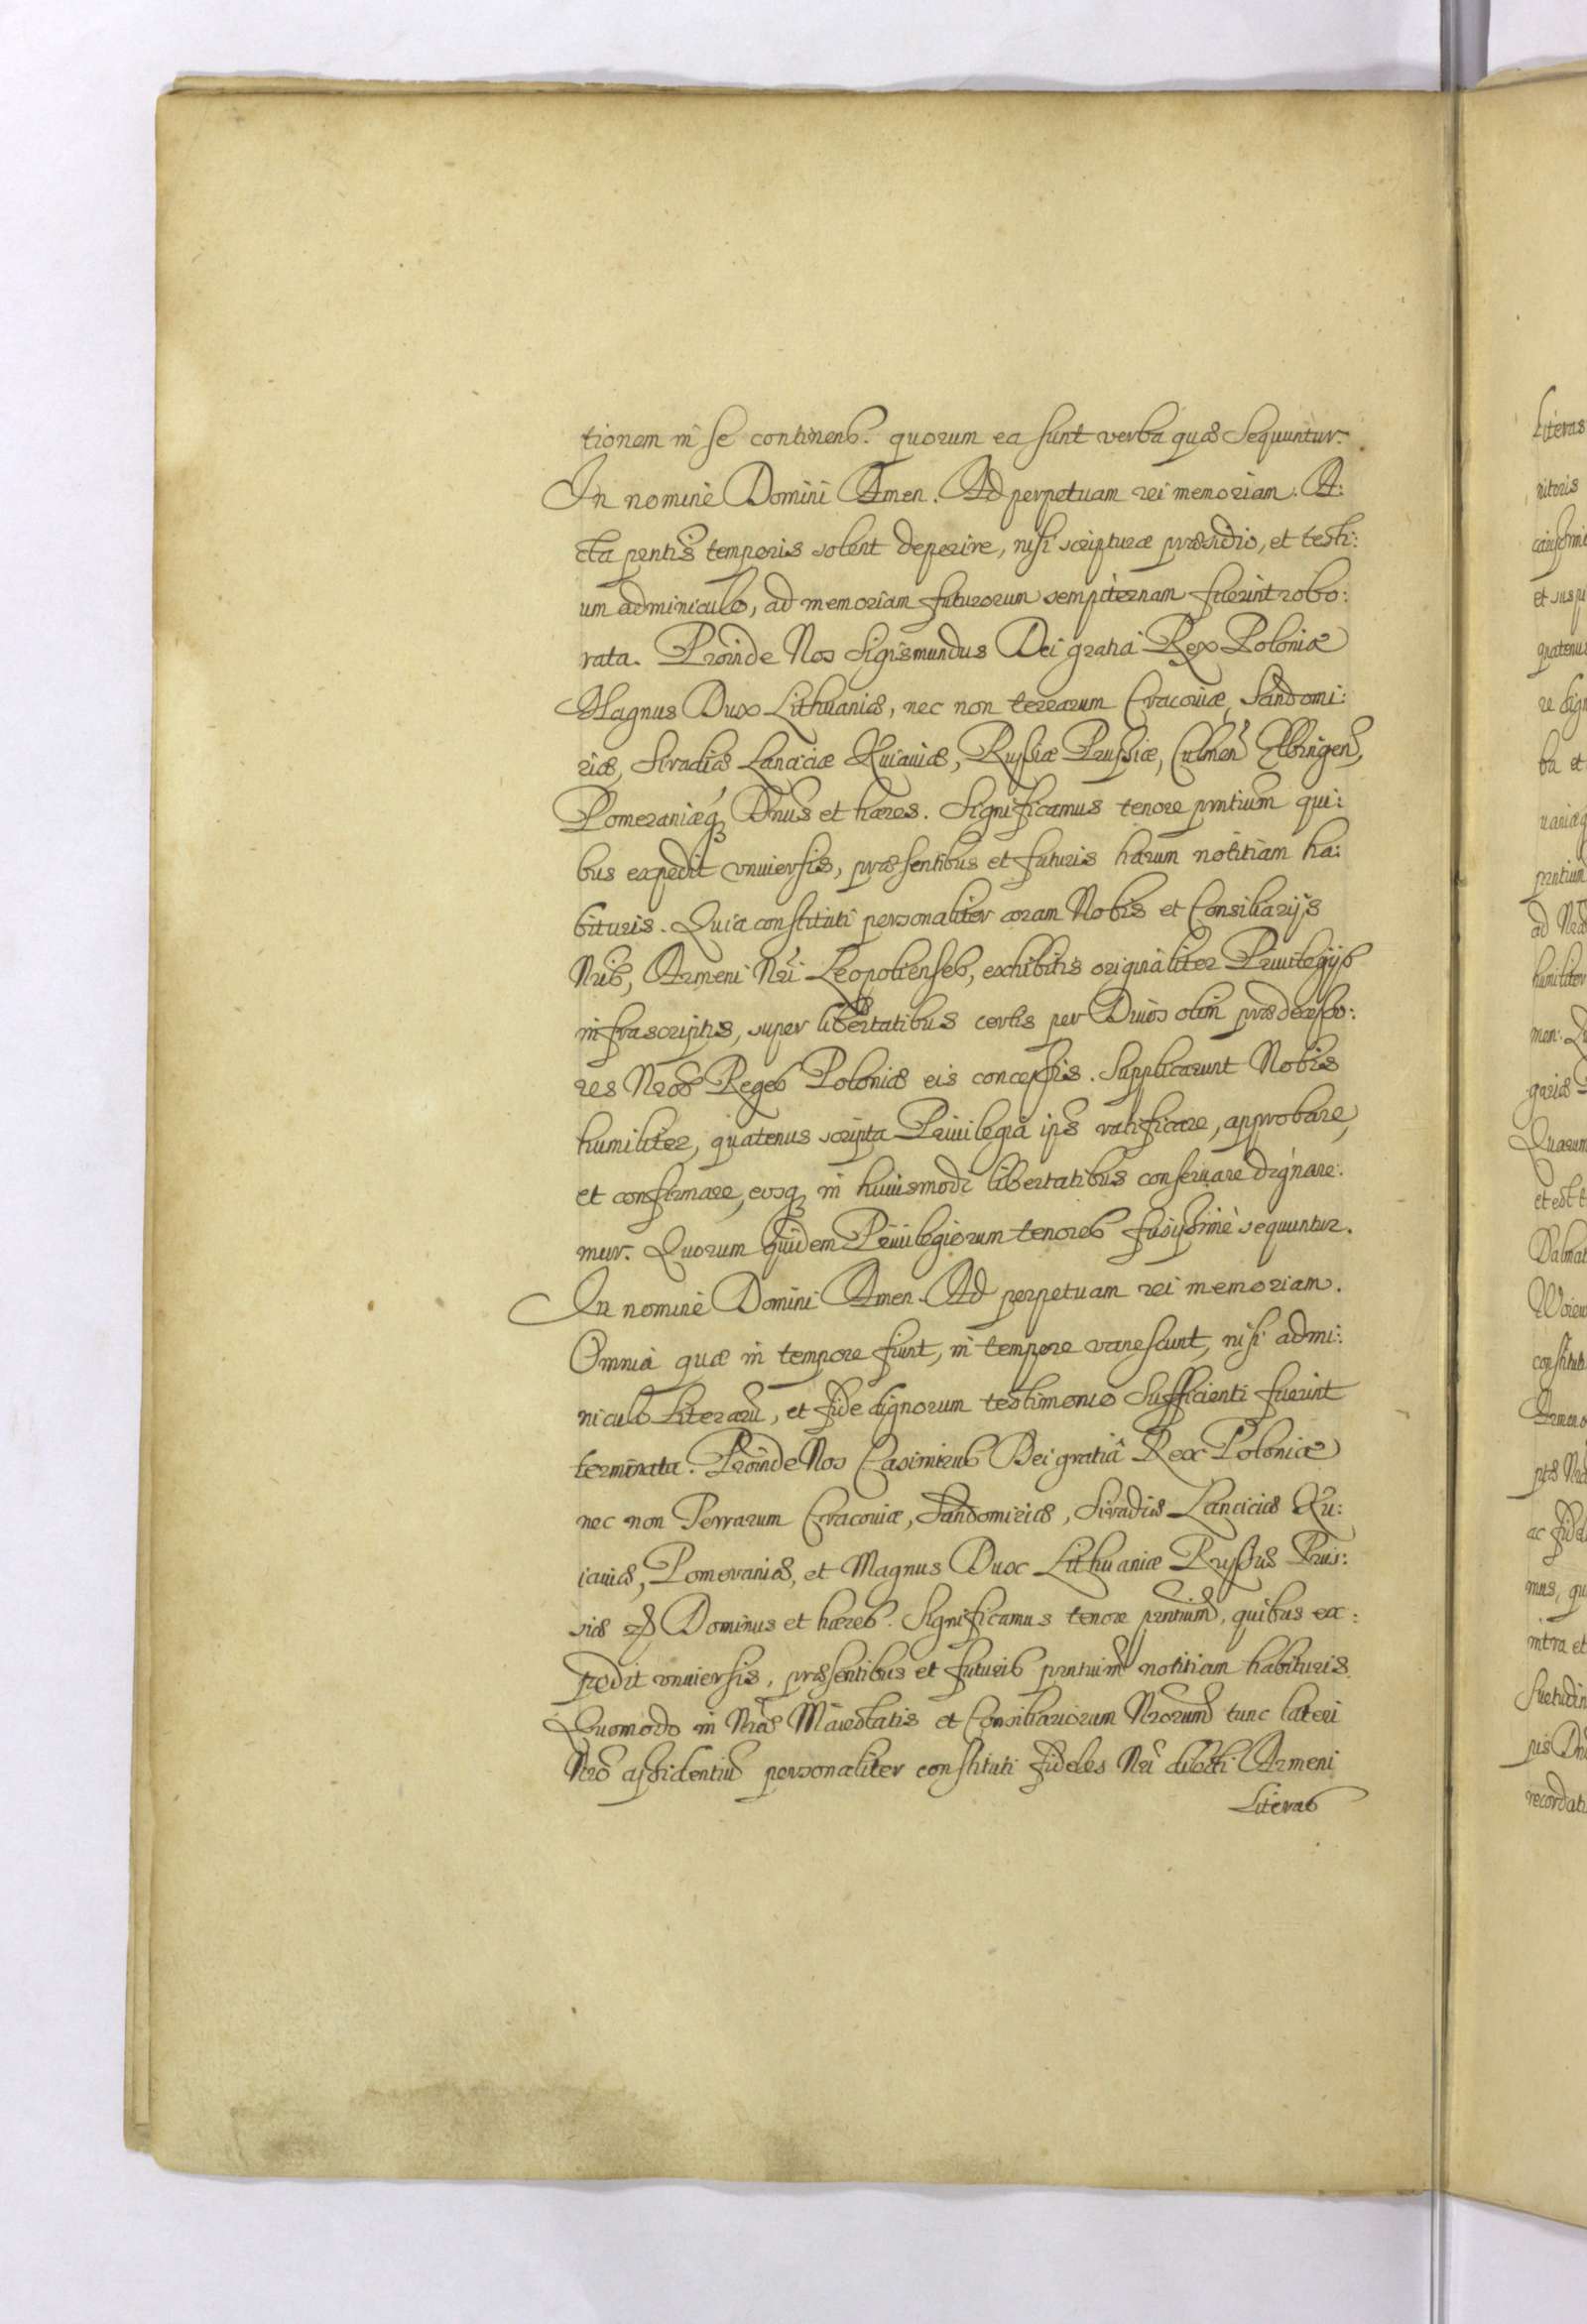 tionem in se continens. quorum ea sunt verba quæ Sequuntur.
In nomine Domini Amen. Ad perpetuam rei memoriam. A:
cta pntis temporis solent deperire, nisi scripturæ præsidio, et testi:
um adminiculo, ad memoriam futurorum sempiternam fuerint robo:
rata. Proinde Nos Sigismundus Dei gratia Rex Poloniæ
Magnus Dux Lithuaniæ, nec non terrarum Cracoviæ, Sandomi:
riæ, Siradiæ Lanciciæ Kuiauiæ, Russiæ Prussiæ, Culmen Elbingen,
Pomeraniæq Dnus et hæres. Significamus tenore pntium qui:
bus expedit vniuersis, præsentibus et futuris harum notitiam ha:
bituris. Quia constituti personaliter coram Nobis et Consiliarijs
Nris, Armeni Nri Leopolienses, exhibitis originaliter Priuilegijs
infrascriptis, super libertatibus certis per Diuos olim prædecesso:
res Nros Reges Poloniæ eis concessis. Supplicarunt Nobis
humiliter, quatenus scripta Priuilegia ips ratificare, approbare,
et confirmare, eosq in huiusmodi libertatibus conseruare dignare:
mur. Quorum quidem Priuilegiorum tenores fusissime sequuntur.
In nomine Domini Amen. Ad perpetuam rei memoriam.
Omnia quæ in tempore fiunt, in tempore vanescunt, nisi admi:
niculo Literarū, et fide dignorum testimonio Sufficienti fuerint
terminata. Proinde Nos Casimirus Dei gratiâ Rex Poloniæ
nec non Terrarum Cracouiæ, Sandomiriæ, Siradiæ Lanciciæ Ku:
iauiæ, Pomeraniæ, et Magnus Dux Lithuaniæ Russiæ Prus:
siæ Dominus et hæres. Significamus tenore pntium, quibus ex:
pedit vniuersis, præsentibus et futuris pntium notitiam habituris.
Quomodo in Nræ Maiestatis et Consiliariorum Nrorum tunc lateri
Nro assidentiū personaliter constituti fideles Nri dilecti Armeni
Literas